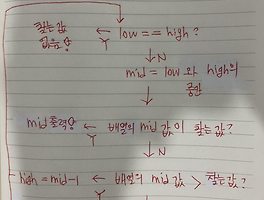 찾는값 없음 ← low == high?
Y
↓ N
mid = low 와 high의 중간
↓
mid 출력 ← 배열의 mid 값이 찾는값?
Y
↓ N
high = mid-1 ← 배열의 mid 값 > 찾는값?
Y